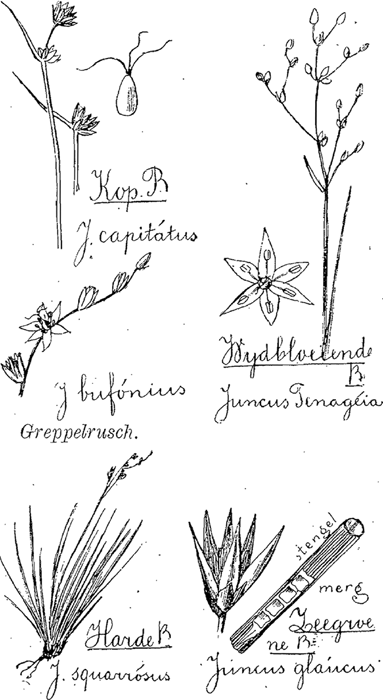 Kop. R
J. capitátus
J bufónius
Greppelrusch.
Wydbloeiende
R
Juncus Tenagéia
Harde R
J. squarrósus
stengel
merg
Zeegroe
ne R=
Juncus glaúcus